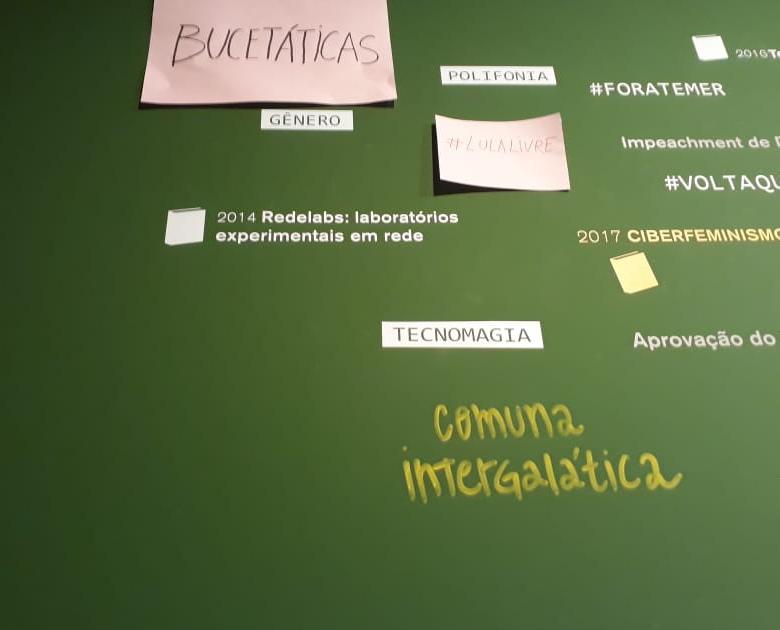 BUCETÁTICAS
POLIFONIA
2016
#FORATEMER
GÊNERO
#LULALIVRE
Impeachment de
#VOLTAQU
2014 Redelabs: laboratórios
experimentais em rede
2017 CIBERFEMINISMO
TECNOMAGIA
Aprovação do
comuna
intergalática